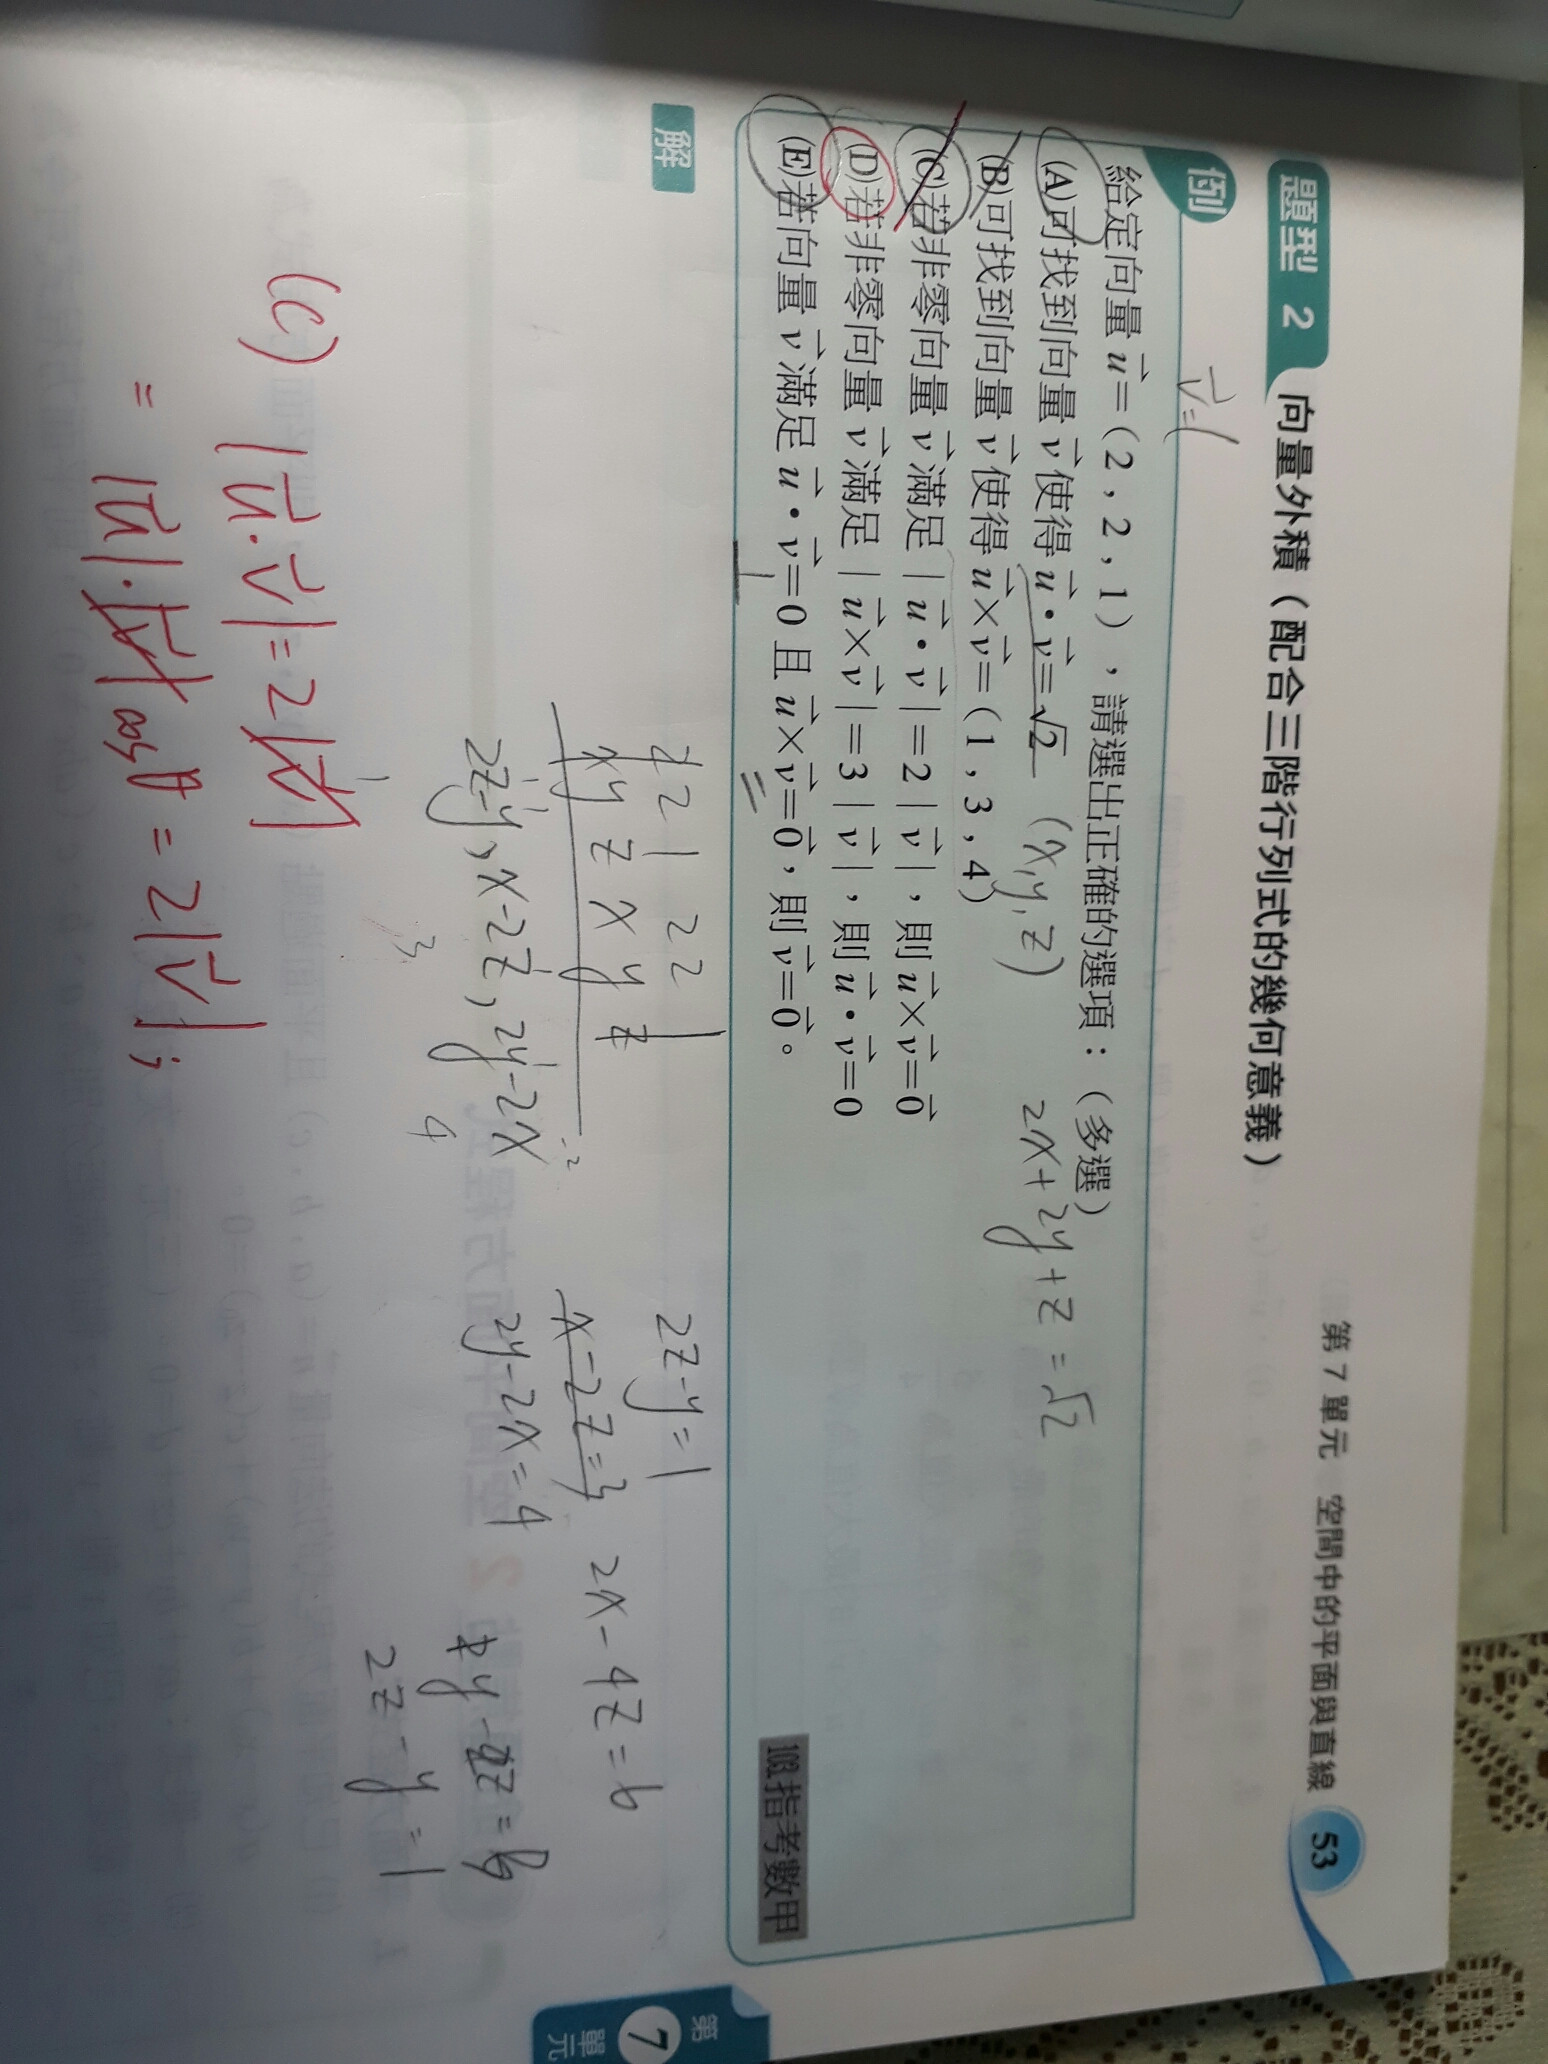 第7單元 空間中的平面與直線 53
題型 2 向量外積（配合三階行列式的幾何意義）
例
v⃗=(
給定向量 u⃗=（2，2，1），請選出正確的選項：（多選）
(A)可找到向量 v⃗ 使得 u⃗・v⃗=√2 (x,y,z) 2x+2y+z=√2
(B)可找到向量 v⃗ 使得 u⃗×v⃗=（1，3，4）
(C)若非零向量 v⃗ 滿足｜u⃗・v⃗｜=2｜v⃗｜，則 u⃗×v⃗=0⃗
(D)若非零向量 v⃗ 滿足｜u⃗×v⃗｜=3｜v⃗｜，則 u⃗・v⃗=0
(E)若向量 v⃗ 滿足 u⃗・v⃗=0 且 u⃗×v⃗=0⃗，則 v⃗=0⃗。
103.指考數甲
解
第7單元
2 2 1 2 2 1
x y z x y z
2z-y, x-2z, 2y-2x
1 3 4
-2
2z-y=1
x-2z=3
2y-2x=4
2x-4z=6
2z-y=1
(c) |u⃗・v⃗|=2|v⃗|
= |u⃗|・|v⃗| cosθ = 2|v⃗|;